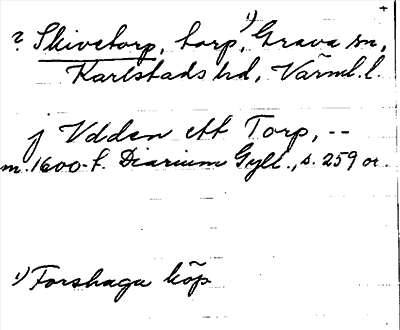 ? Skivetorp, torp, 1) Grava sn,
Karlstads hd, Värml. l.
j Vdden ett Torp, --
m. 1600-t. Diarium Gyll., s. 259 or.
1) Forshaga köp